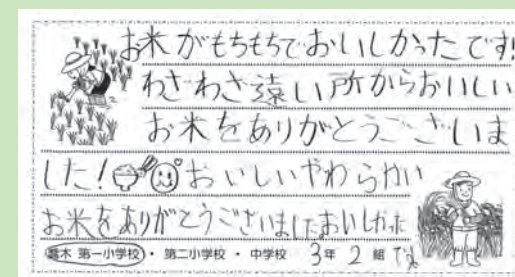 お米がもちもちでおいしかったです!
わざわざ遠い所からおいしい
お米をありがとうございま
した!おいしいやわらかい
お米をありがとうございましたおいしかった
第一小学校・第二小学校・中学校 3年 2 組 です